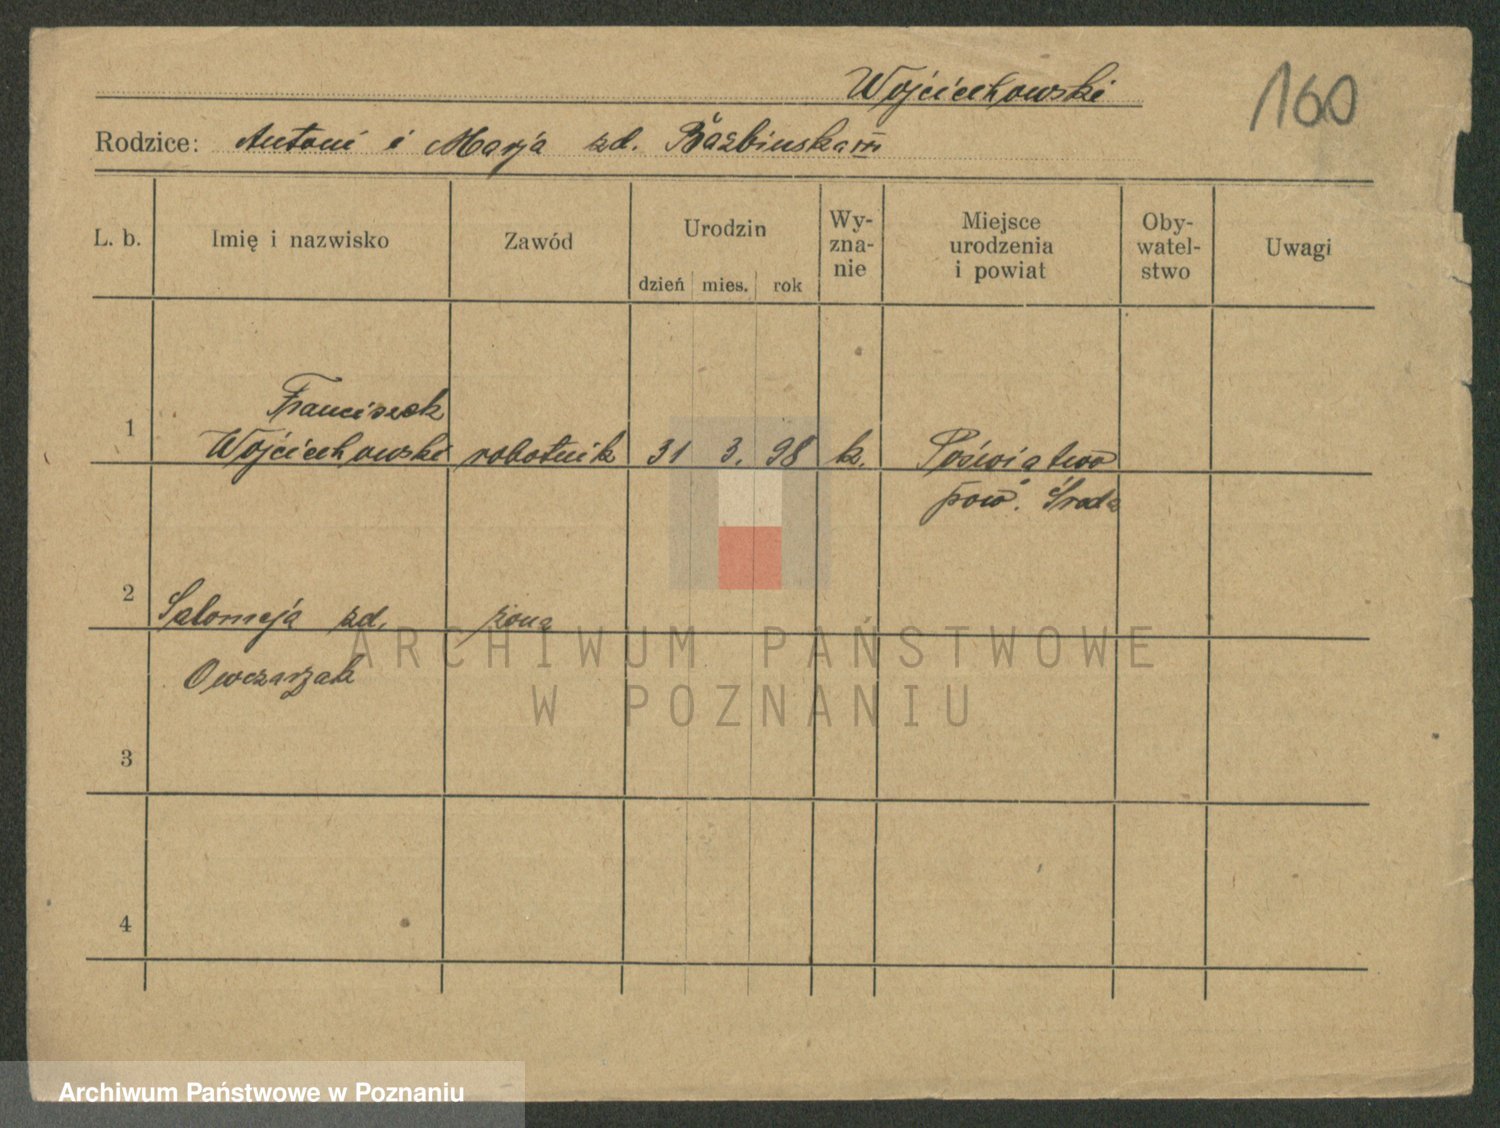 Wojciechowski
160
Rodzice: Antoni i Marja zd.
L. b. Imię i nazwisko Zawód Urodzin Wy-
zna-
nie Miejsce
urodzenia
i powiat Oby-
watel-
stwo Uwagi
dzień mies. rok
1 Franciszek
Wojciechowski robotnik 31 3. 98 k.
pow. Środa
2 Salomeja zd. żona
Owczarzak
3
4
ARCHIWUM PAŃSTWOWE
W POZNANIU
Archiwum Państwowe w Poznaniu